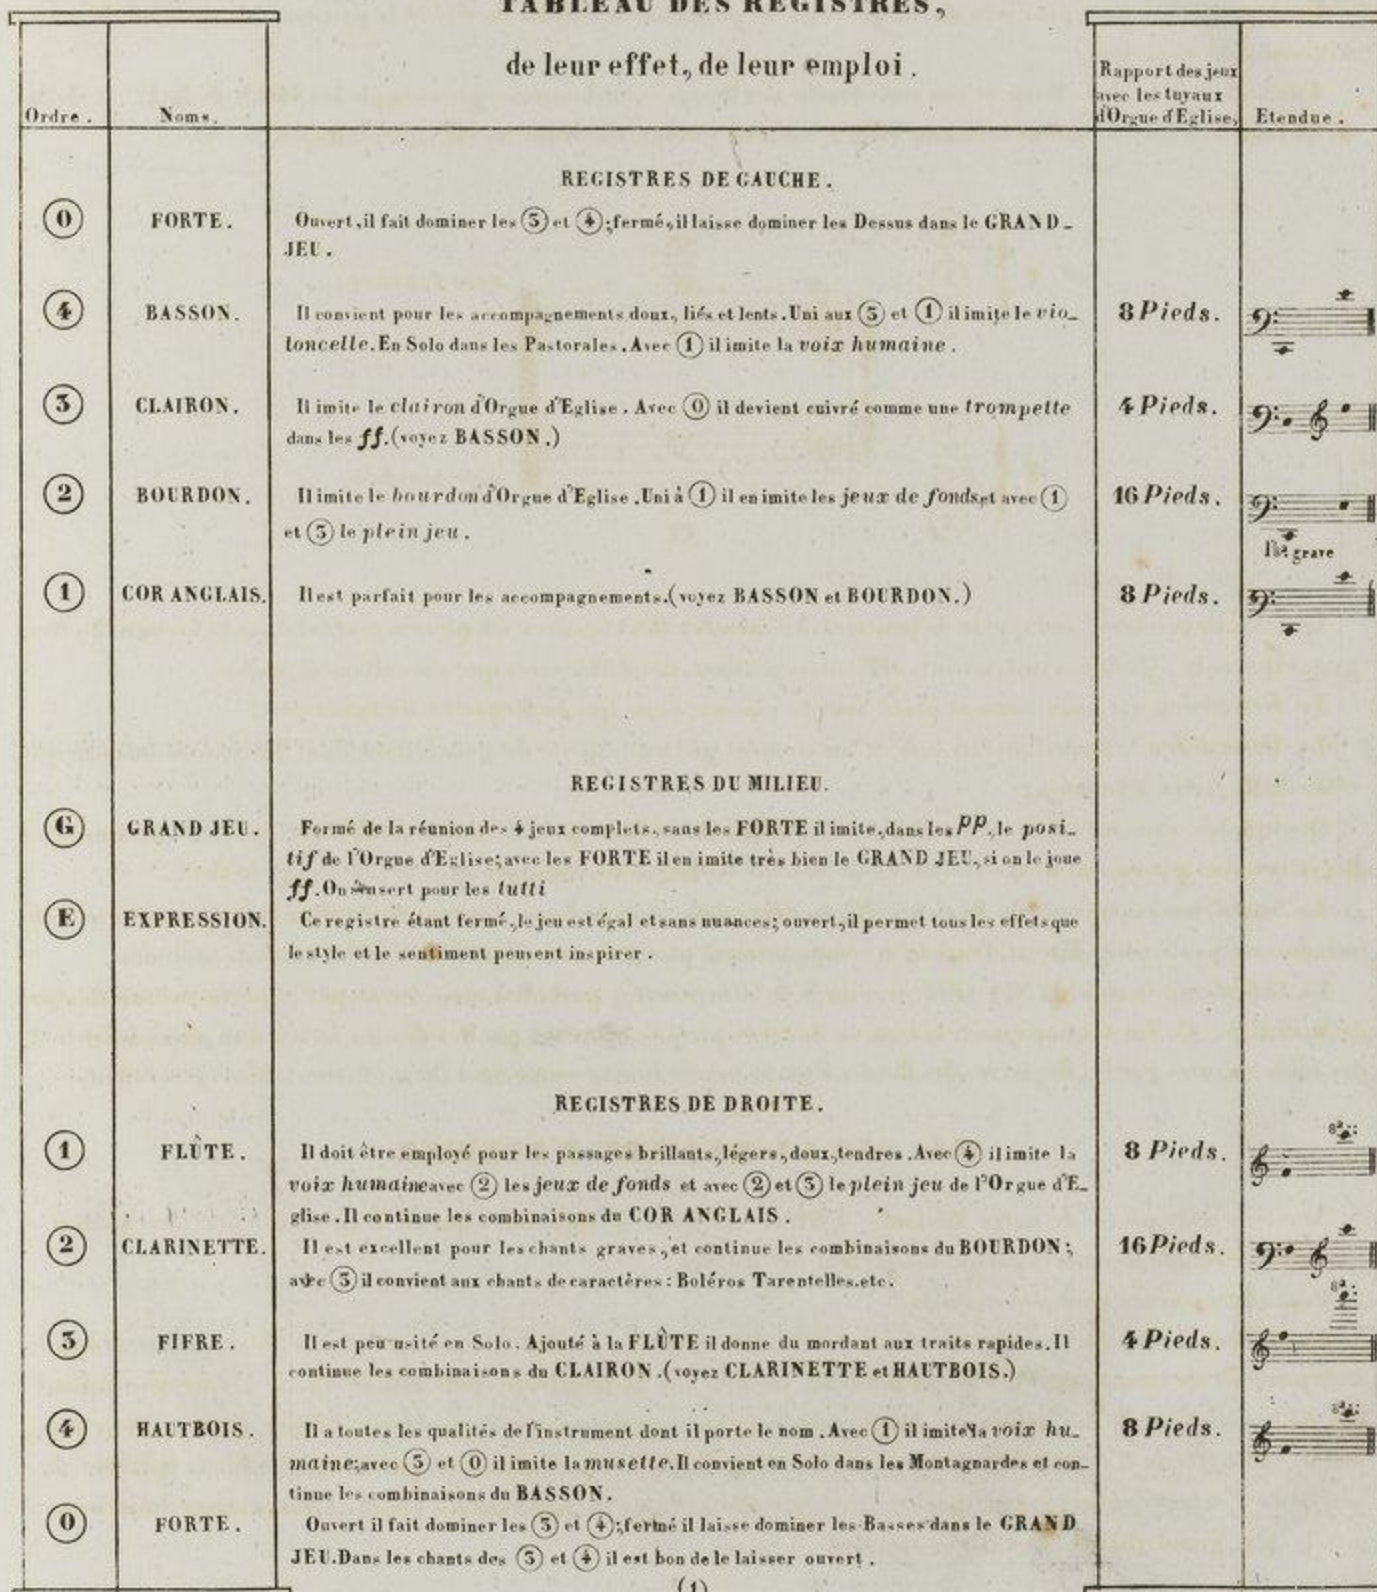 TABLEAU DES REGISTRES,
de leur effet, de leur emploi.
Ordre. Noms. Rapport des jeux avec les tuyaux d'Orgue d'Eglise, Etendue.
REGISTRES DE GAUCHE.
0 FORTE. Ouvert, il fait dominer les 3 et 4; fermé, il laisse dominer les Dessus dans le GRAND-
JEU.
4 BASSON. Il convient pour les accompagnements doux, liés et lents. Uni aux 3 et 1 il imite le vio- 8 Pieds.
loncelle. En Solo dans les Pastorales. Avec 1 il imite la voix humaine.
3 CLAIRON. Il imite le clairon d'Orgue d'Eglise. Avec 0 il devient cuivré comme une trompette 4 Pieds.
dans les ff. (voyez BASSON.)
2 BOURDON. Il imite le bourdon d'Orgue d'Eglise. Uni à 1 il en imite les jeux de fonds, et avec 1 16 Pieds.
et 3 le plein jeu.
grave
1 COR ANGLAIS. Il est parfait pour les accompagnements. (voyez BASSON et BOURDON.) 8 Pieds.
REGISTRES DU MILIEU.
G GRAND JEU. Formé de la réunion des 4 jeux complets, sans les FORTE il imite, dans les PP, le posi-
tif de l'Orgue d'Eglise; avec les FORTE il en imite très bien le GRAND JEU, si on le joue
ff. On s'en sert pour les tutti
E EXPRESSION. Ce registre étant fermé, le jeu est égal et sans nuances; ouvert, il permet tous les effets que
le style et le sentiment peuvent inspirer.
REGISTRES DE DROITE.
8a
1 FLÛTE. Il doit être employé pour les passages brillants, légers, doux, tendres. Avec 4 il imite la 8 Pieds.
voix humaine avec 2 les jeux de fonds et avec 2 et 3 le plein jeu de l'Orgue d'E-
glise. Il continue les combinaisons du COR ANGLAIS.
2 CLARINETTE. Il est excellent pour les chants graves, et continue les combinaisons du BOURDON; 16 Pieds.
avec 3 il convient aux chants de caractères: Boléros Tarentelles. etc.
8a
3 FIFRE. Il est peu usité en Solo. Ajouté à la FLÛTE il donne du mordant aux traits rapides. Il 4 Pieds.
continue les combinaisons du CLAIRON. (voyez CLARINETTE et HAUTBOIS.)
8a
4 HAUTBOIS. Il a toutes les qualités de l'instrument dont il porte le nom. Avec 1 il imite la voix hu- 8 Pieds.
maine; avec 3 et 0 il imite la musette. Il convient en Solo dans les Montagnardes et con-
tinue les combinaisons du BASSON.
0 FORTE. Ouvert il fait dominer les 3 et 4; fermé il laisse dominer les Basses dans le GRAND
JEU. Dans les chants des 3 et 4 il est bon de le laisser ouvert.
(1)